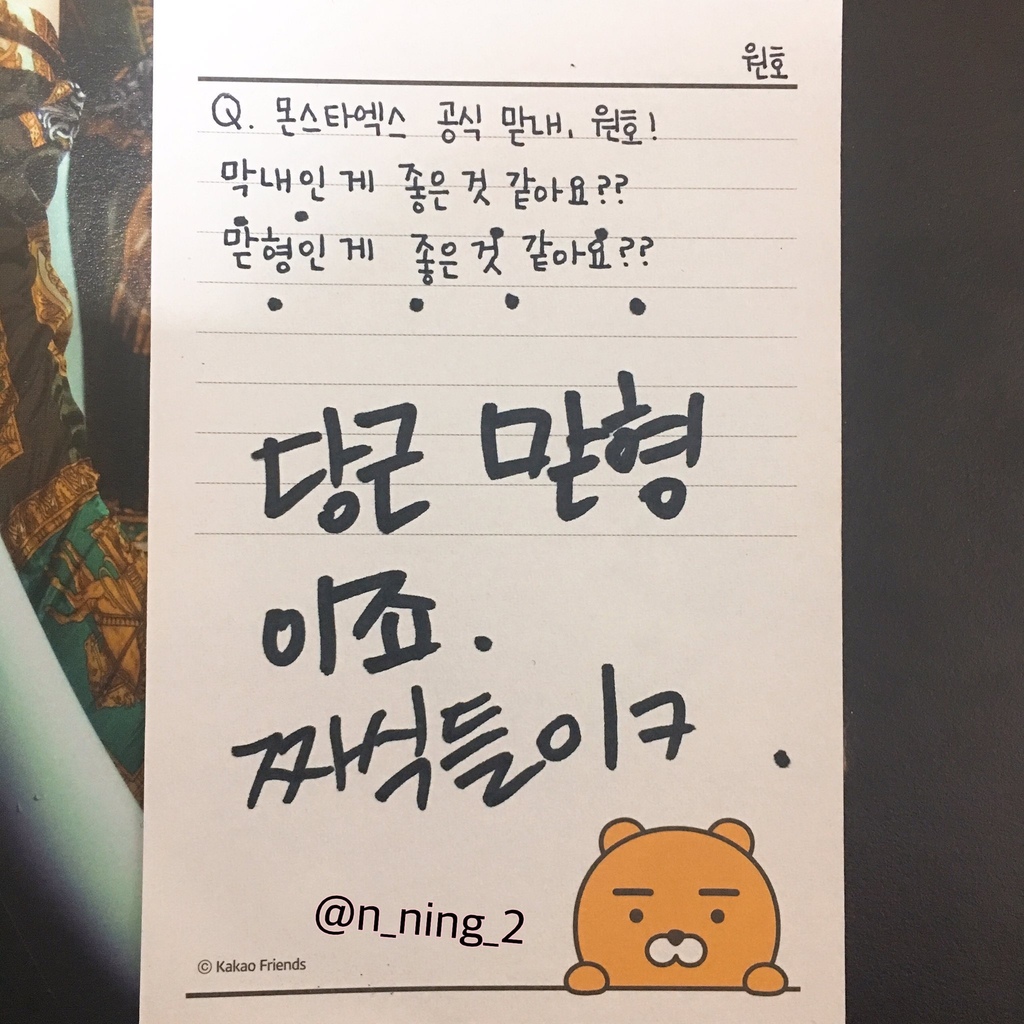 원호
Q. 몬스타엑스 공식 맏내, 원호!
막내인 게 좋은 것 같아요??
맏형인 게 좋은 것 같아요??
당근 맏형
이죠.
짜식들이ㅋ.
@n_ning_2
© Kakao Friends